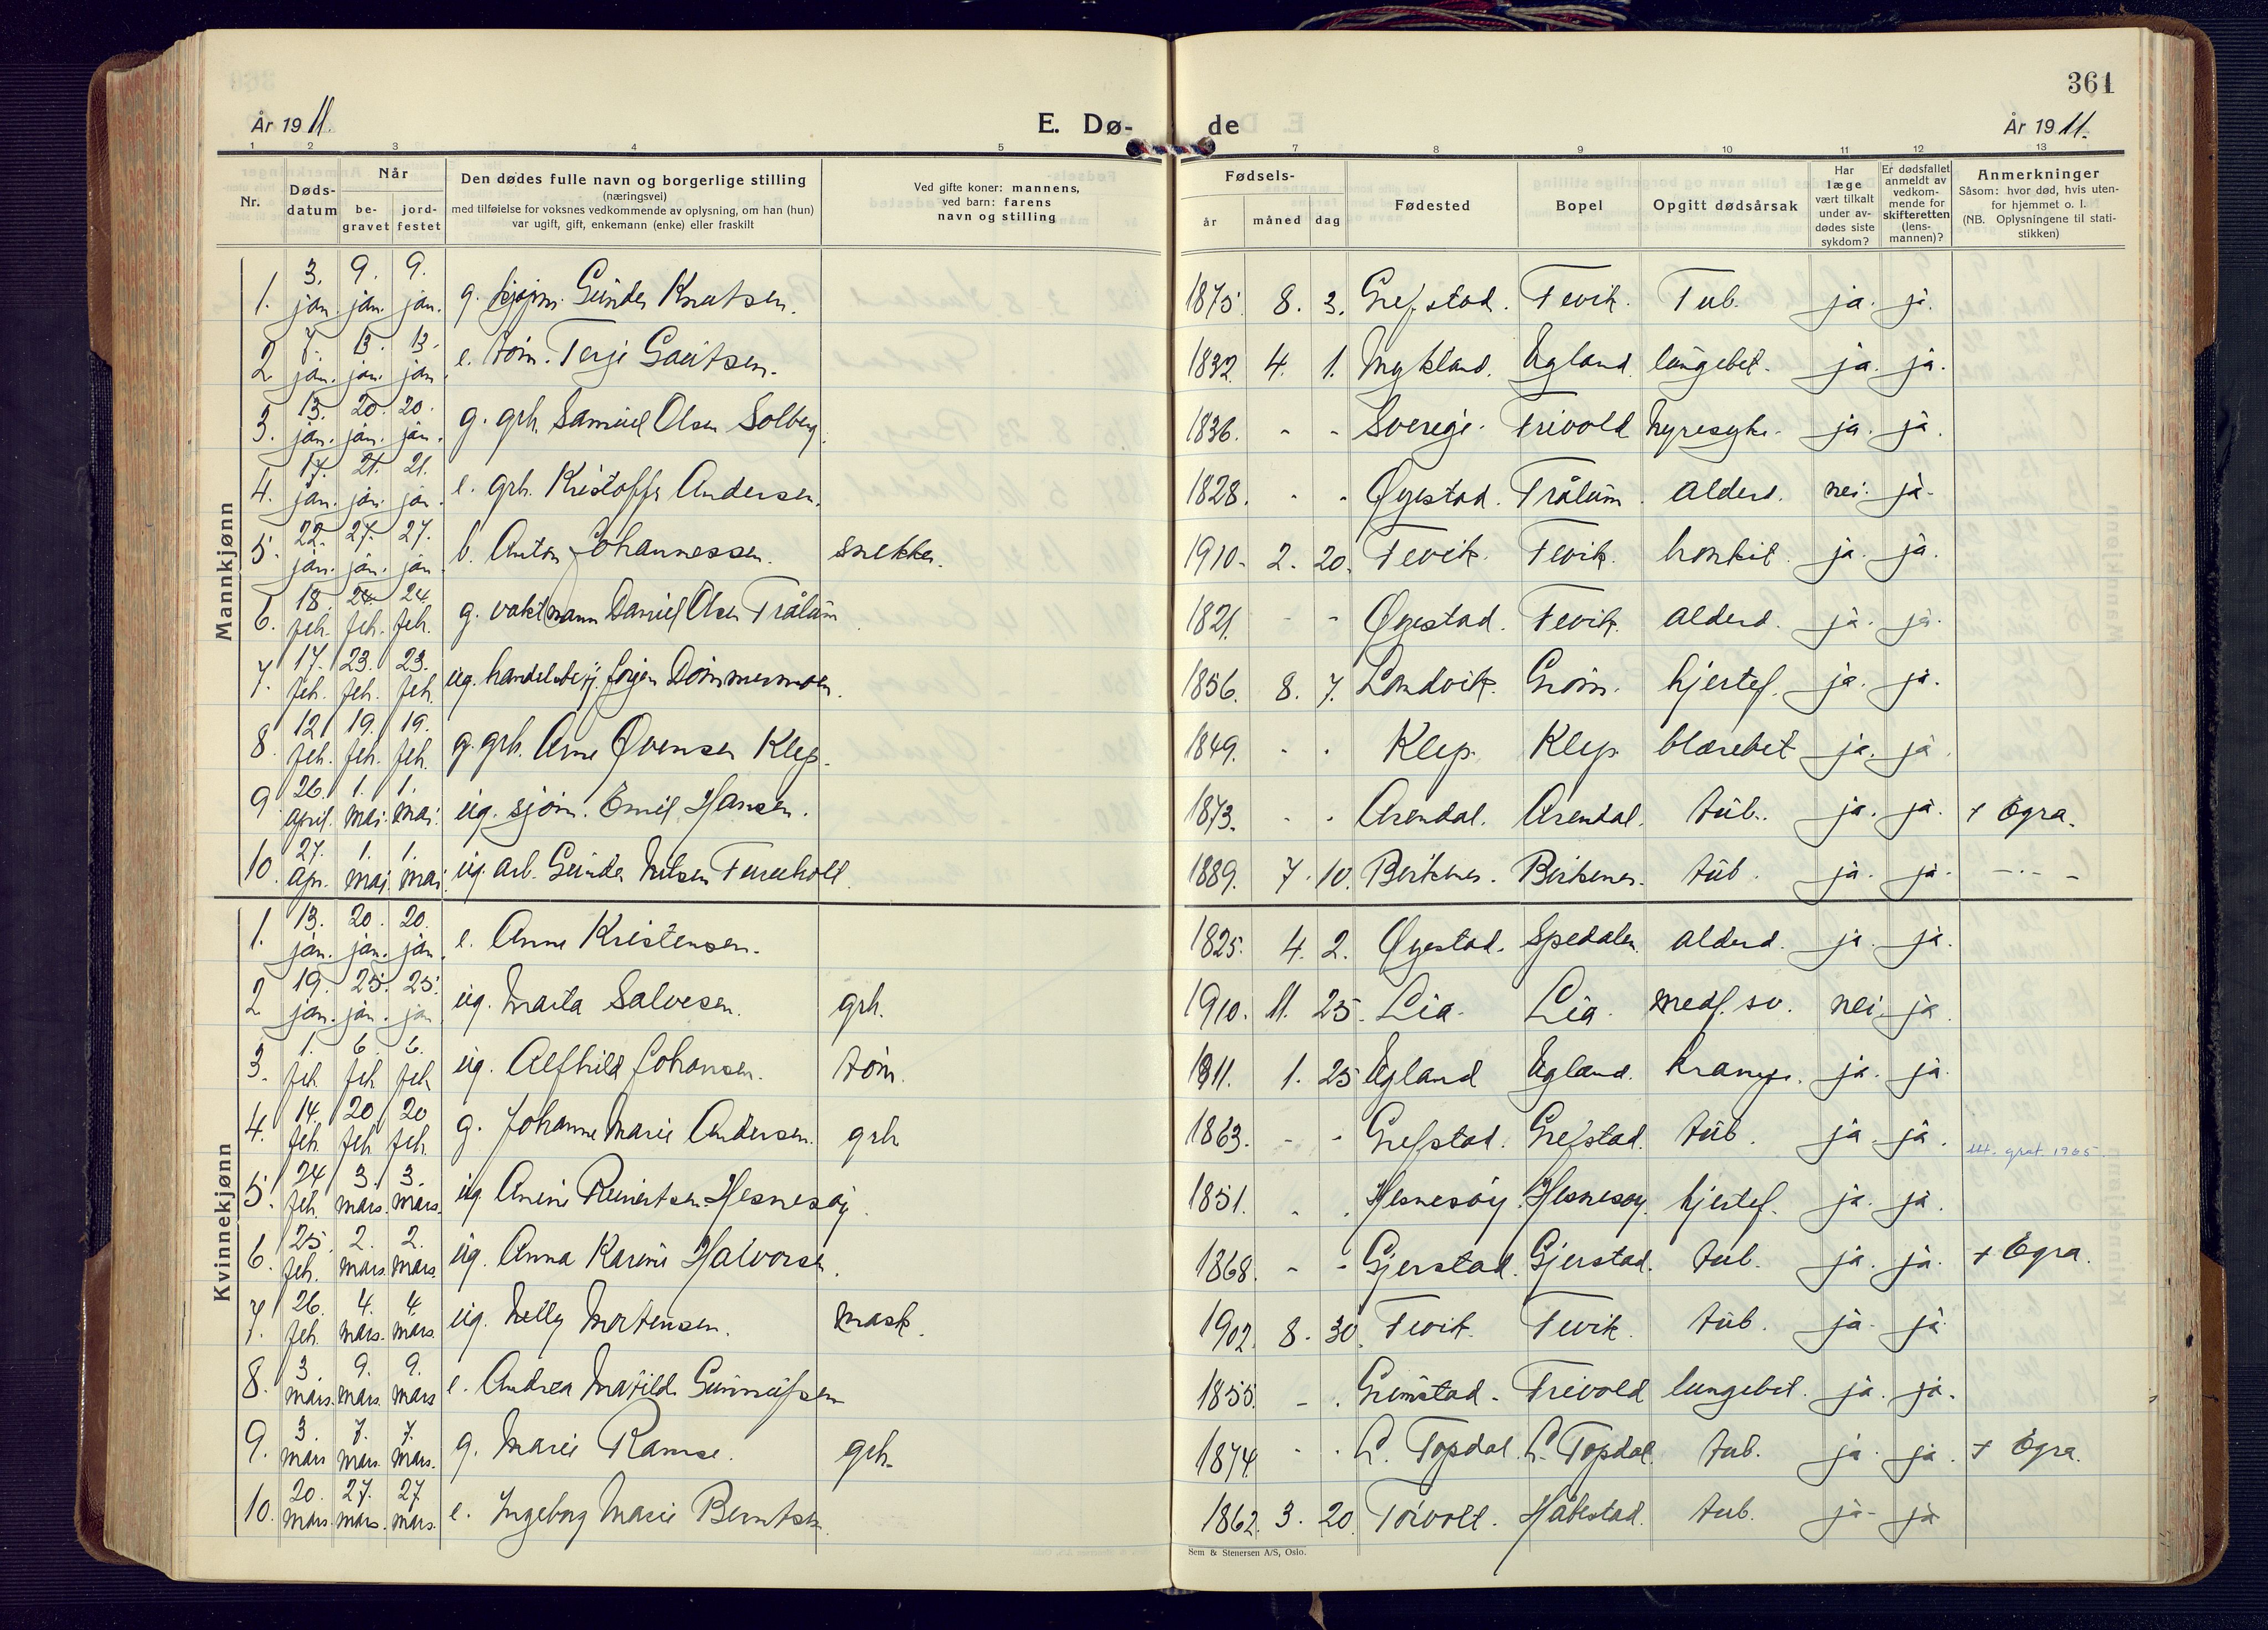 361
År 1911.
E. Dø-
de
År 1911.
1 2 3 4 5
7 8 9 10 11 12 13
Nr.
Døds-
datum
Når
be-
gravet
jord-
festet
Den dødes fulle navn og borgerlige stilling
(næringsvei)
med tilføielse for voksnes vedkommende av oplysning, om han (hun)
var ugift, gift, enkemann (enke) eller fraskilt
Ved gifte koner: mannens,
ved barn: farens
navn og stilling
Fødsels-
år måned dag
Fødested
Bopel
Opgitt dødsårsak
Har
læge
vært tilkalt
under av-
dødes siste
sykdom?
Er dødsfallet
anmeldt av
vedkom-
mende for
skifteretten
(lens-
mannen)?
Anmerkninger
Såsom: hvor død, hvis uten-
for hjemmet o. l.
(NB. Oplysningene til stati-
stikken)
Mannkjønn
1. 3. jan. 9. jan. 9. jan. g. Gunder Knutsen. 1875. 8. 3. Grefstad. Fevik. Tub. ja. ja.
2 7. jan. 13. jan. 13. jan. e. tøm. Terje Gautsen. 1832. 4. 1. Mykland. Ugland. lungebet. ja. ja.
3. 13. jan. 20. jan. 20. jan. g. grh. Samuel Olsen Solberg. 1836. - - Sverige. Trivold nyresyke. ja. ja.
4. 17. jan. 21. jan. 21. jan. e. grh. Kristoffer Andersen. 1828. - - Øyestad. Trålum. alderd. nei. ja.
5. 22. jan. 27. jan. 27. jan. b. Anton Johannessen. snekker. 1910. 2. 20. Fevik. Fevik. bronkit. ja. ja.
6. 18. feb. 24. feb. 24. feb. g. vaktmann Daniel Olsen Trålum 1821. - - Øyestad. Fevik. alderd. ja. ja.
7. 17. feb. 23. feb. 23. feb. ug. handelsbetj. Jørgen Dømmesmoen. 1856. 8. 7. Landvik. Grøm. hjertef. ja. ja.
8. 12 feb. 19. feb. 19. feb. g. grh. Arne Øvensen Klep. 1849. - - Klep. Klep blærebet ja. ja.
9 26. april. 1. mai. 1. mai. ug. sjøm. Emil Hansen. 1873. - - Arendal. Arendal. tub. ja. ja. + Egra.
10. 27. apr. 1. mai. 1. mai. ug. arb. Gunder Nilsen Tureholt. 1889. 7. 10. Birkenes. Birkenes. tub. ja. ja. -.-
Kvinnekjønn
1. 13. jan. 20. jan. 20. jan. e. Anne Kristensen. 1825. 4. 2. Øyestad. Spedalen. alderd. ja. ja.
2 19. jan. 25. jan. 25. jan ug. Marta Salvesen. grh. 1910. 11. 25. Lia. Lia. medf. sv. nei. ja.
3. 1. feb. 6. feb 6. feb ug. Alfhild Johansen. tøm. 1911. 1. 25 Ugland Ugland. krampe. ja. ja.
4. 14. feb. 20 feb 20 feb. g. Johanne Marie Andersen. grh 1863. - - Grefstad. Grefstad. tub. ja ja. utt. grat. 1965.
5. 24 feb. 3. mars. 3. mars. ug. Anine Reinertsen Hesnesøy. 1851. - . Hesnesøy. Hesnesøy. hjertef. ja. ja.
6. 25. feb. 2. mars. 2. mars ug. Anna Karine Halvorsen. 1868. - - Gjerstad. Gjerstad. tub. ja. ja. + Egra.
7. 26. feb. 4. mars. 4. mars ug. Nelly Mortensen. mask. 1902. 8. 30. Fevik. Fevik. tub. ja. ja
8. 3. mars. 9. mars 9. mars e. Andrea Matilde Gunnufsen 1855. - . Grimstad. Trivold lungebet. ja. ja.
9. 3. mars 7. mars. 7. mars. g. Marie Ramse. grh. 1874. - . Topdal. Topdal. tub. ja. ja. + Egra.
10. 20. mars. 27. mars. 27 mars. e. Ingeborg Marie Berntsen. 1862. 3. 20. Torvold. Håbestad. tub. ja. ja
Sem & Stenersen A/S, Oslo.